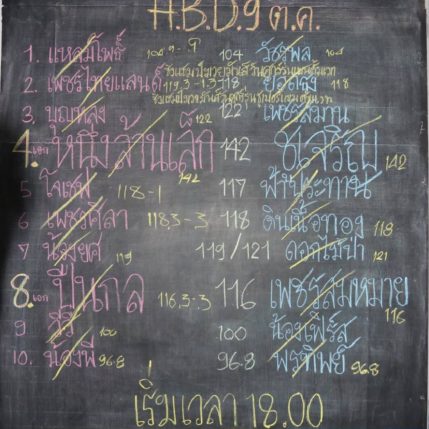 H.B.D 9 ต.ค.
1. แหลมโพธิ์ 104 9-9 104 วัชรพล 104
2. เพชรไทยแลนด์ 119.3-1.3-118 ยอดธง 118
3. บุญหลง 122 122 เพชรสีมาน
4. เอก หนึ่งล้านเล็ก 142 142 ช.เจริญ 142
5 โจเซฟ 118-1 117 ฟ้าประทาน
6 เพชรศิลา 118.3-3 118 ดินเนื้อทอง 118
7 น้องยศ 119 119/121 ดอกไม้ป่า 121
8. เอก ปืนกล 116.3-3 116 เพชรสมหมาย 116
9 100 100 น้องเฟิร์ส
10. น้องพี 96.8 96.8 พรทิพย์ 96.8
เริ่มเวลา 18.00